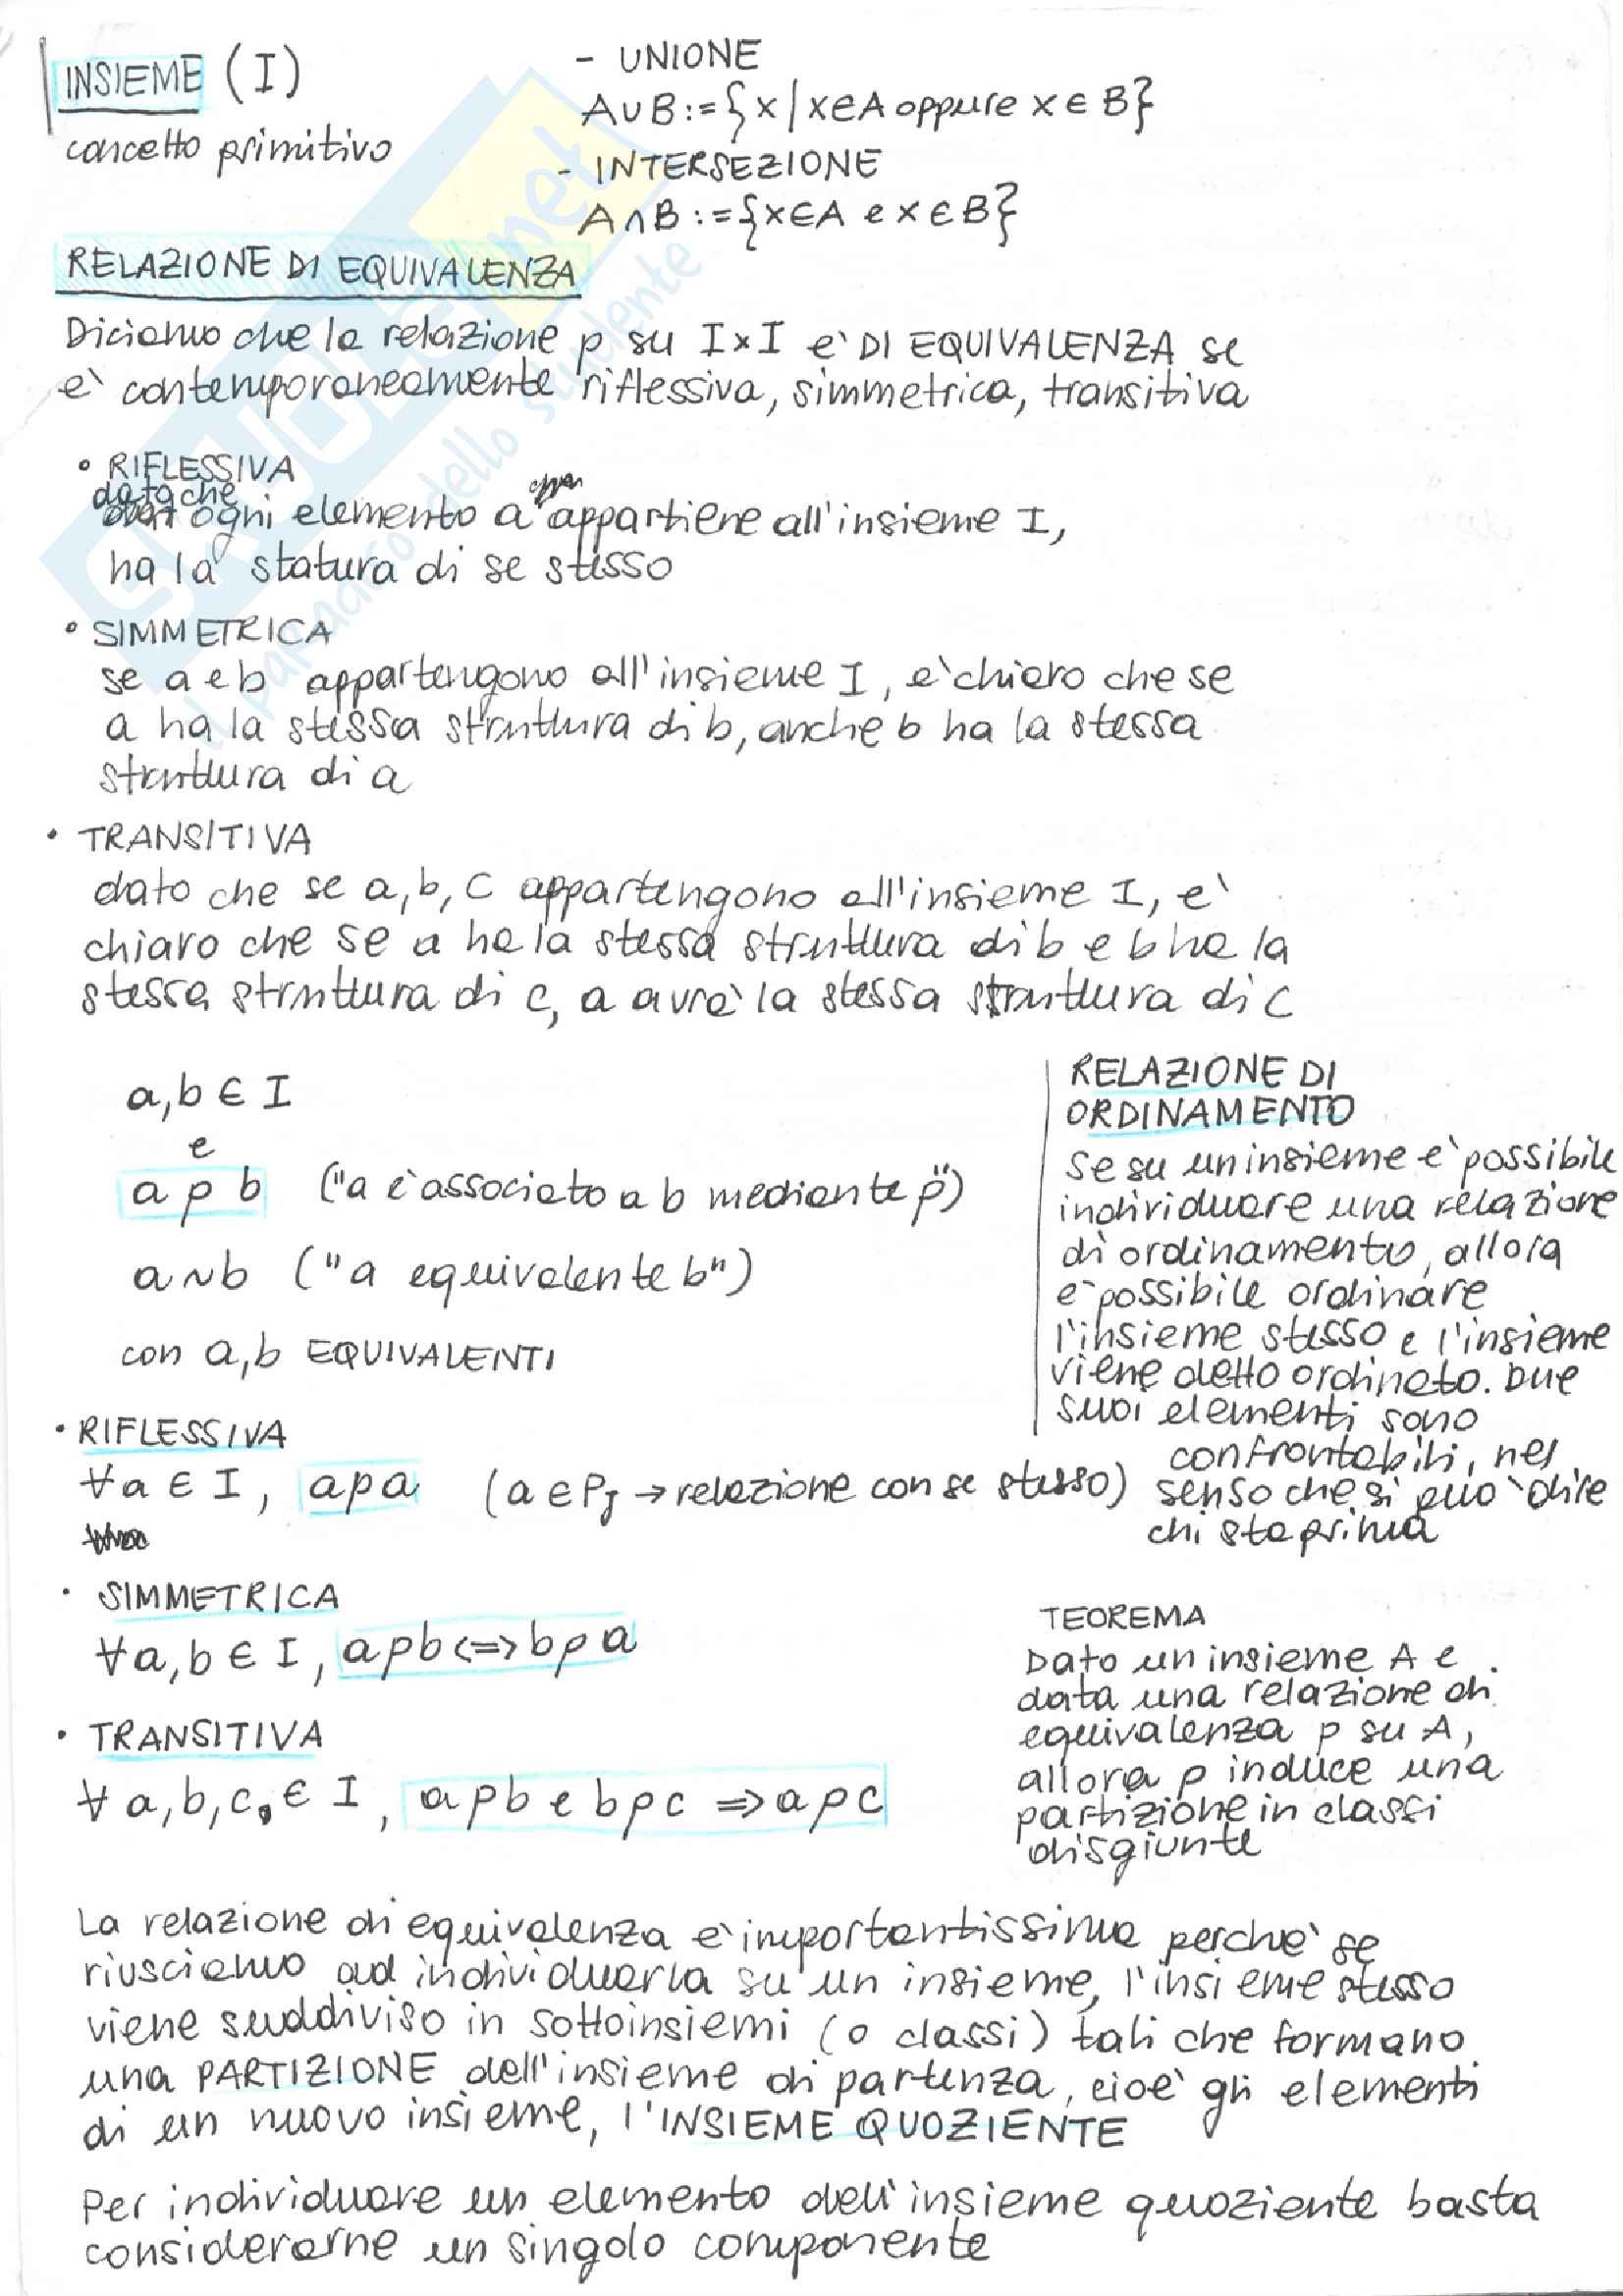 INSIEME (I)
concetto primitivo
- UNIONE
A∪B:={x/x∈A oppure x∈B}
- INTERSEZIONE
A∩B:={x∈A e x∈B}
RELAZIONE DI EQUIVALENZA
Diciamo che la relazione ρ su I×I e' DI EQUIVALENZA se
e' contemporaneamente riflessiva, simmetrica, transitiva
• RIFLESSIVA
dato che
ogni elemento a appartiene all'insieme I,
ha la statura di se stesso
• SIMMETRICA
se a e b appartengono all'insieme I, e' chiaro che se
a ha la stessa struttura di b, anche b ha la stessa
struttura di a
• TRANSITIVA
dato che se a, b, c appartengono all'insieme I, e'
chiaro che se a ha la stessa struttura di b e b ha la
stessa struttura di c, a avra' la stessa struttura di c
a,b ∈ I
e
a ρ b ("a e' associato a b mediante ρ")
a ~ b ("a equivalente b")
con a,b EQUIVALENTI
RELAZIONE DI
ORDINAMENTO
Se su un insieme e' possibile
individuare una relazione
di ordinamento, allora
e' possibile ordinare
l'insieme stesso e l'insieme
viene detto ordinato. Due
suoi elementi sono
confrontabili, nel
senso che si puo' dire
chi sta prima
• RIFLESSIVA
∀a ∈ I, aρa (a∈ρJ → relazione con se stesso)
• SIMMETRICA
∀a,b ∈ I, aρb <=> bρa
• TRANSITIVA
∀ a,b,c, ∈ I, aρb e bρc => aρc
TEOREMA
Dato un insieme A e
data una relazione di
equivalenza ρ su A,
allora ρ induce una
partizione in classi
disgiunte
La relazione di equivalenza e' importantissima perche' se
riusciamo ad individuarla su un insieme, l'insieme stesso
viene suddiviso in sottoinsiemi (o classi) tali che formano
una PARTIZIONE dell'insieme di partenza, cioe' gli elementi
di un nuovo insieme, l'INSIEME QUOZIENTE
Per individuare un elemento dell'insieme quoziente basta
considerarne un singolo componente
SKUOLA.net
il paradiso dello studente